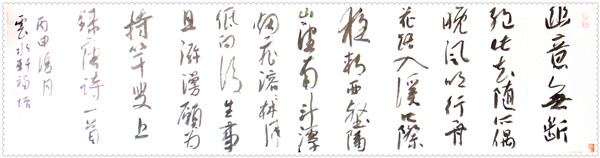 幽意無斷
絕此去隨所偶
晚風吹行舟
花路入溪口際
夜轉西壑隔
山望南斗潭
烟飛溶溶林月
低向後生事
且瀰漫願為
持竿叟 上
錄唐詩一首
丙申月
雲水軒